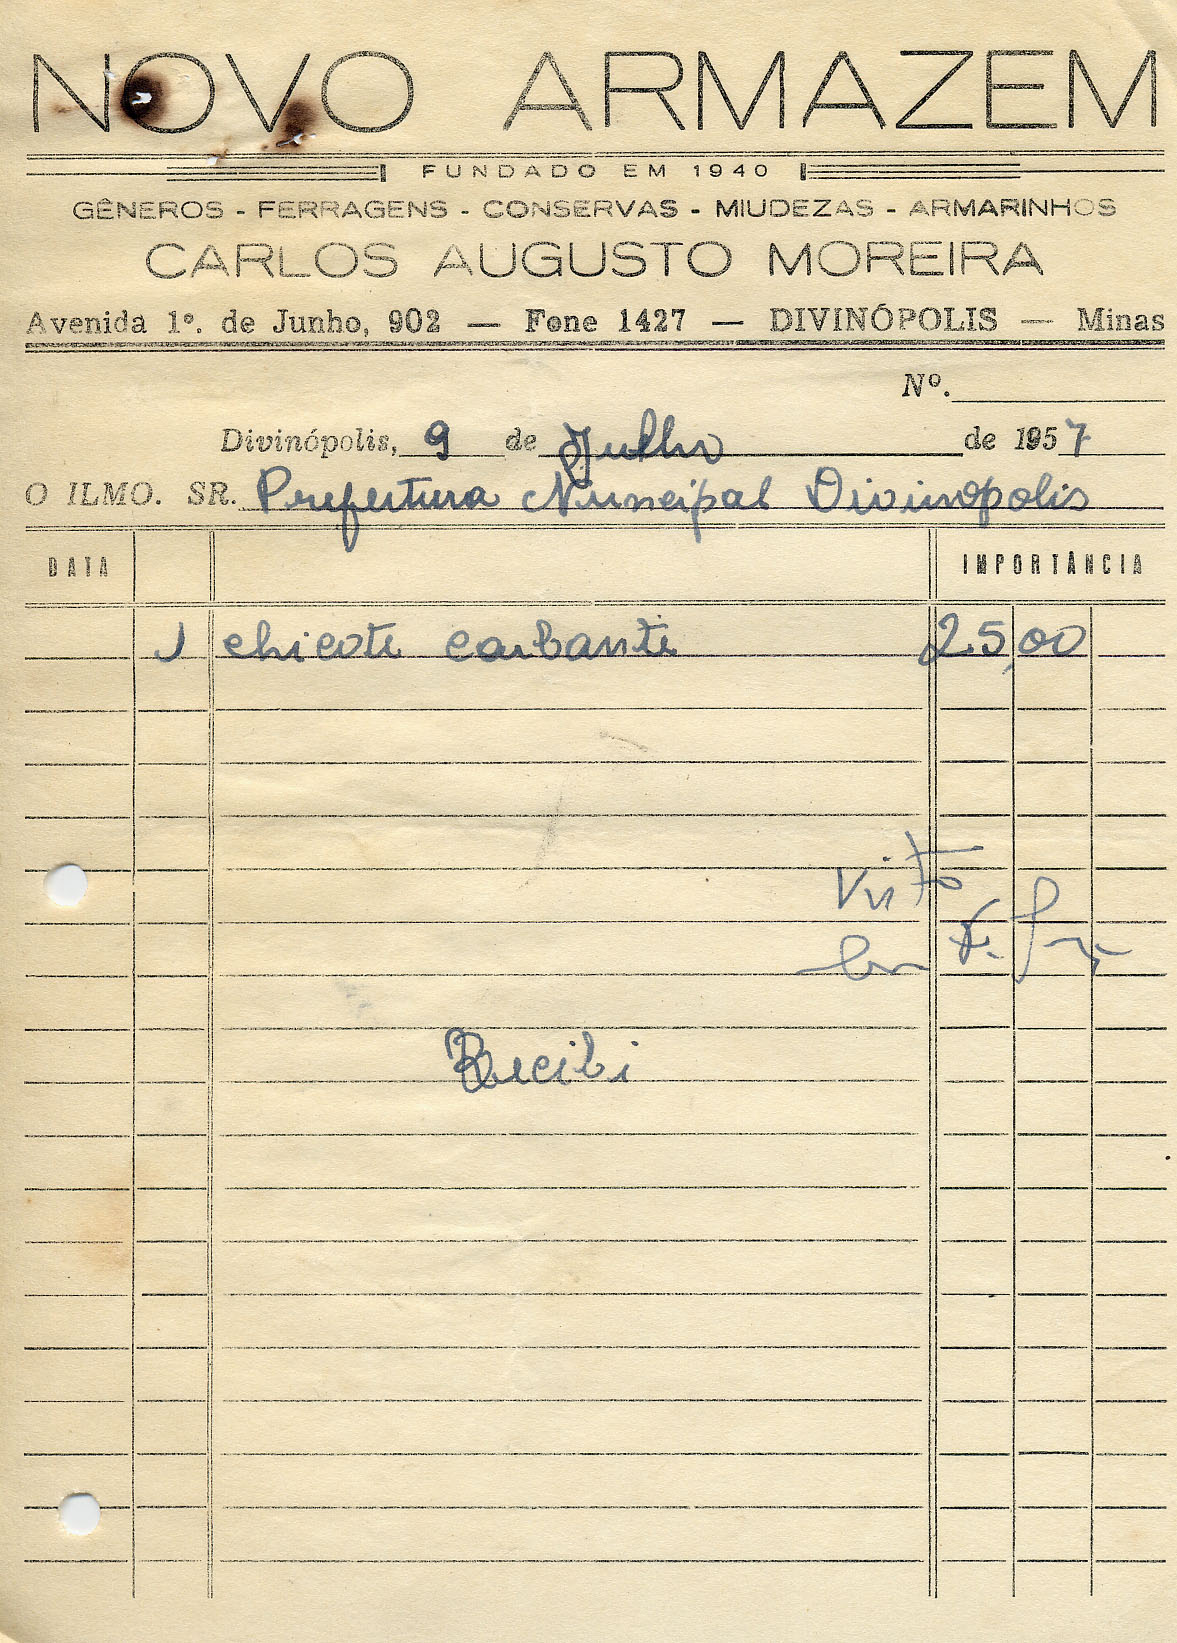 NOVO ARMAZEM
FUNDADO EM 1940
GÊNEROS - FERRAGENS - CONSERVAS - MIUDEZAS - ARMARINHOS
CARLOS AUGUSTO MOREIRA
Avenida 1º. de Junho, 902 — Fone 1427 — DIVINÓPOLIS — Minas
Nº.
Divinópolis, 9 de Julho de 1957
O ILMO. SR. Prefeitura Municipal Divinopolis
DATA IMPORTÂNCIA
1 chicote barbante 25,00
Visto
Recibi